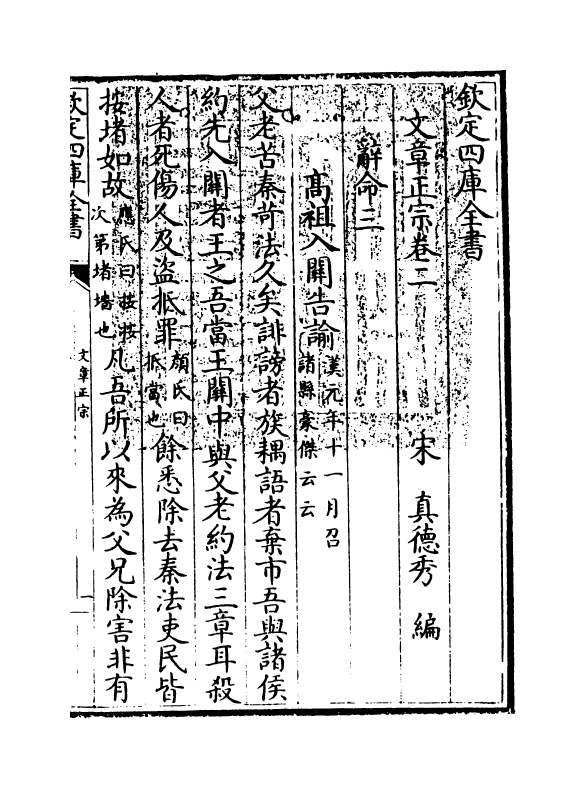 欽定四庫全書
文章正宗卷二
宋 真德秀 編
辭命二
高祖入關告諭漢元年十一月召
諸縣豪傑云云
父老苦秦苛法久矣誹謗者族耦語者棄市吾與諸侯
約先入關者王之吾當王關中與父老約法三章耳殺
人者死傷人及盜抵罪顔氏曰
抵當也餘悉除去秦法吏民皆
按堵如故應氏曰按按
次第堵墻也凡吾所以來為父兄除害非有
欽定四庫全書
文章正宗
一